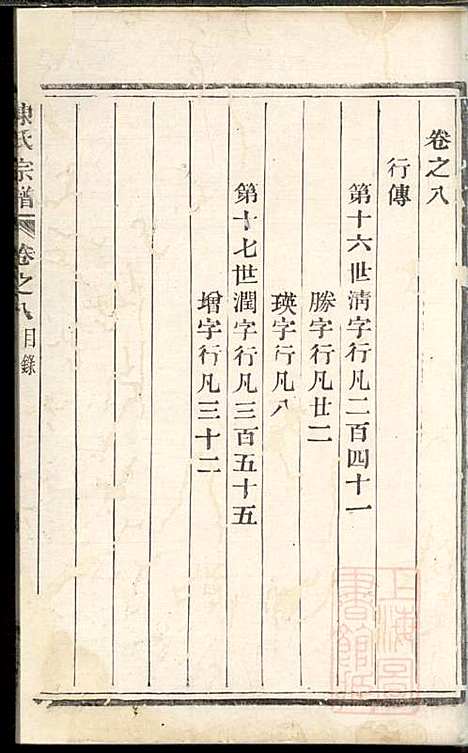 卷之八
行傳
第十六世清字行凡二百四十一
勝字行凡廿二
瑛字行凡八
第十七世潤字行凡三百五十五
增字行凡三十二
陳氏宗譜 卷之八 目錄
上海圖書館藏